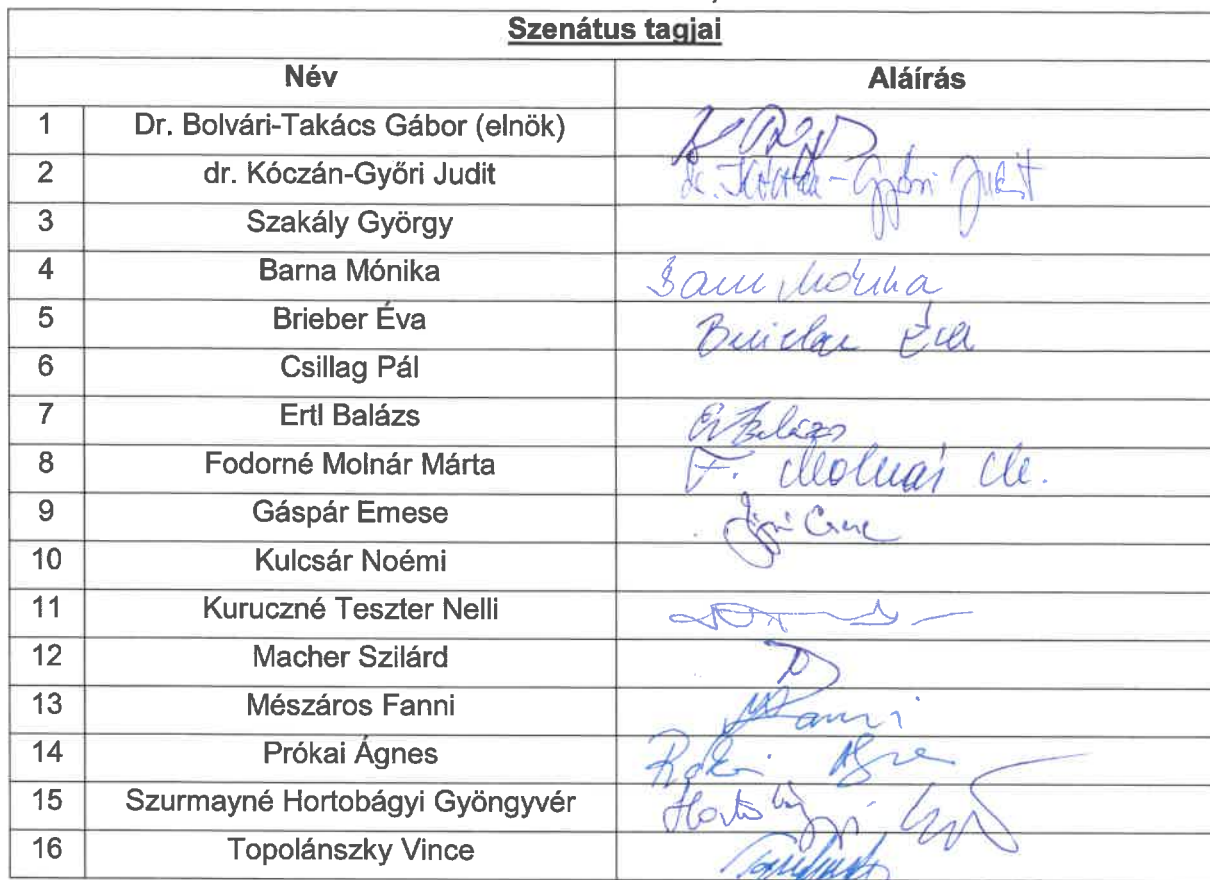 Szenátus tagjai
Név Aláírás
1 Dr. Bolvári-Takács Gábor (elnök)
2 dr. Kóczán-Győri Judit dr. Kóczán-Győri Judit
3 Szakály György
4 Barna Mónika Barna Mónika
5 Brieber Éva Brieber Éva
6 Csillag Pál
7 Ertl Balázs
8 Fodorné Molnár Márta F. Molnár M.
9 Gáspár Emese
10 Kulcsár Noémi
11 Kuruczné Teszter Nelli
12 Macher Szilárd
13 Mészáros Fanni
14 Prókai Ágnes
15 Szurmayné Hortobágyi Gyöngyvér
16 Topolánszky Vince